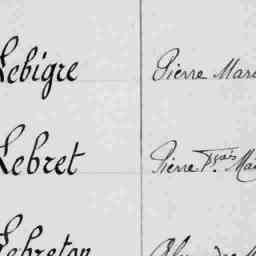 Lebigre Pierre Mari
Lebret Pierre Fçois Ma
Lebreton